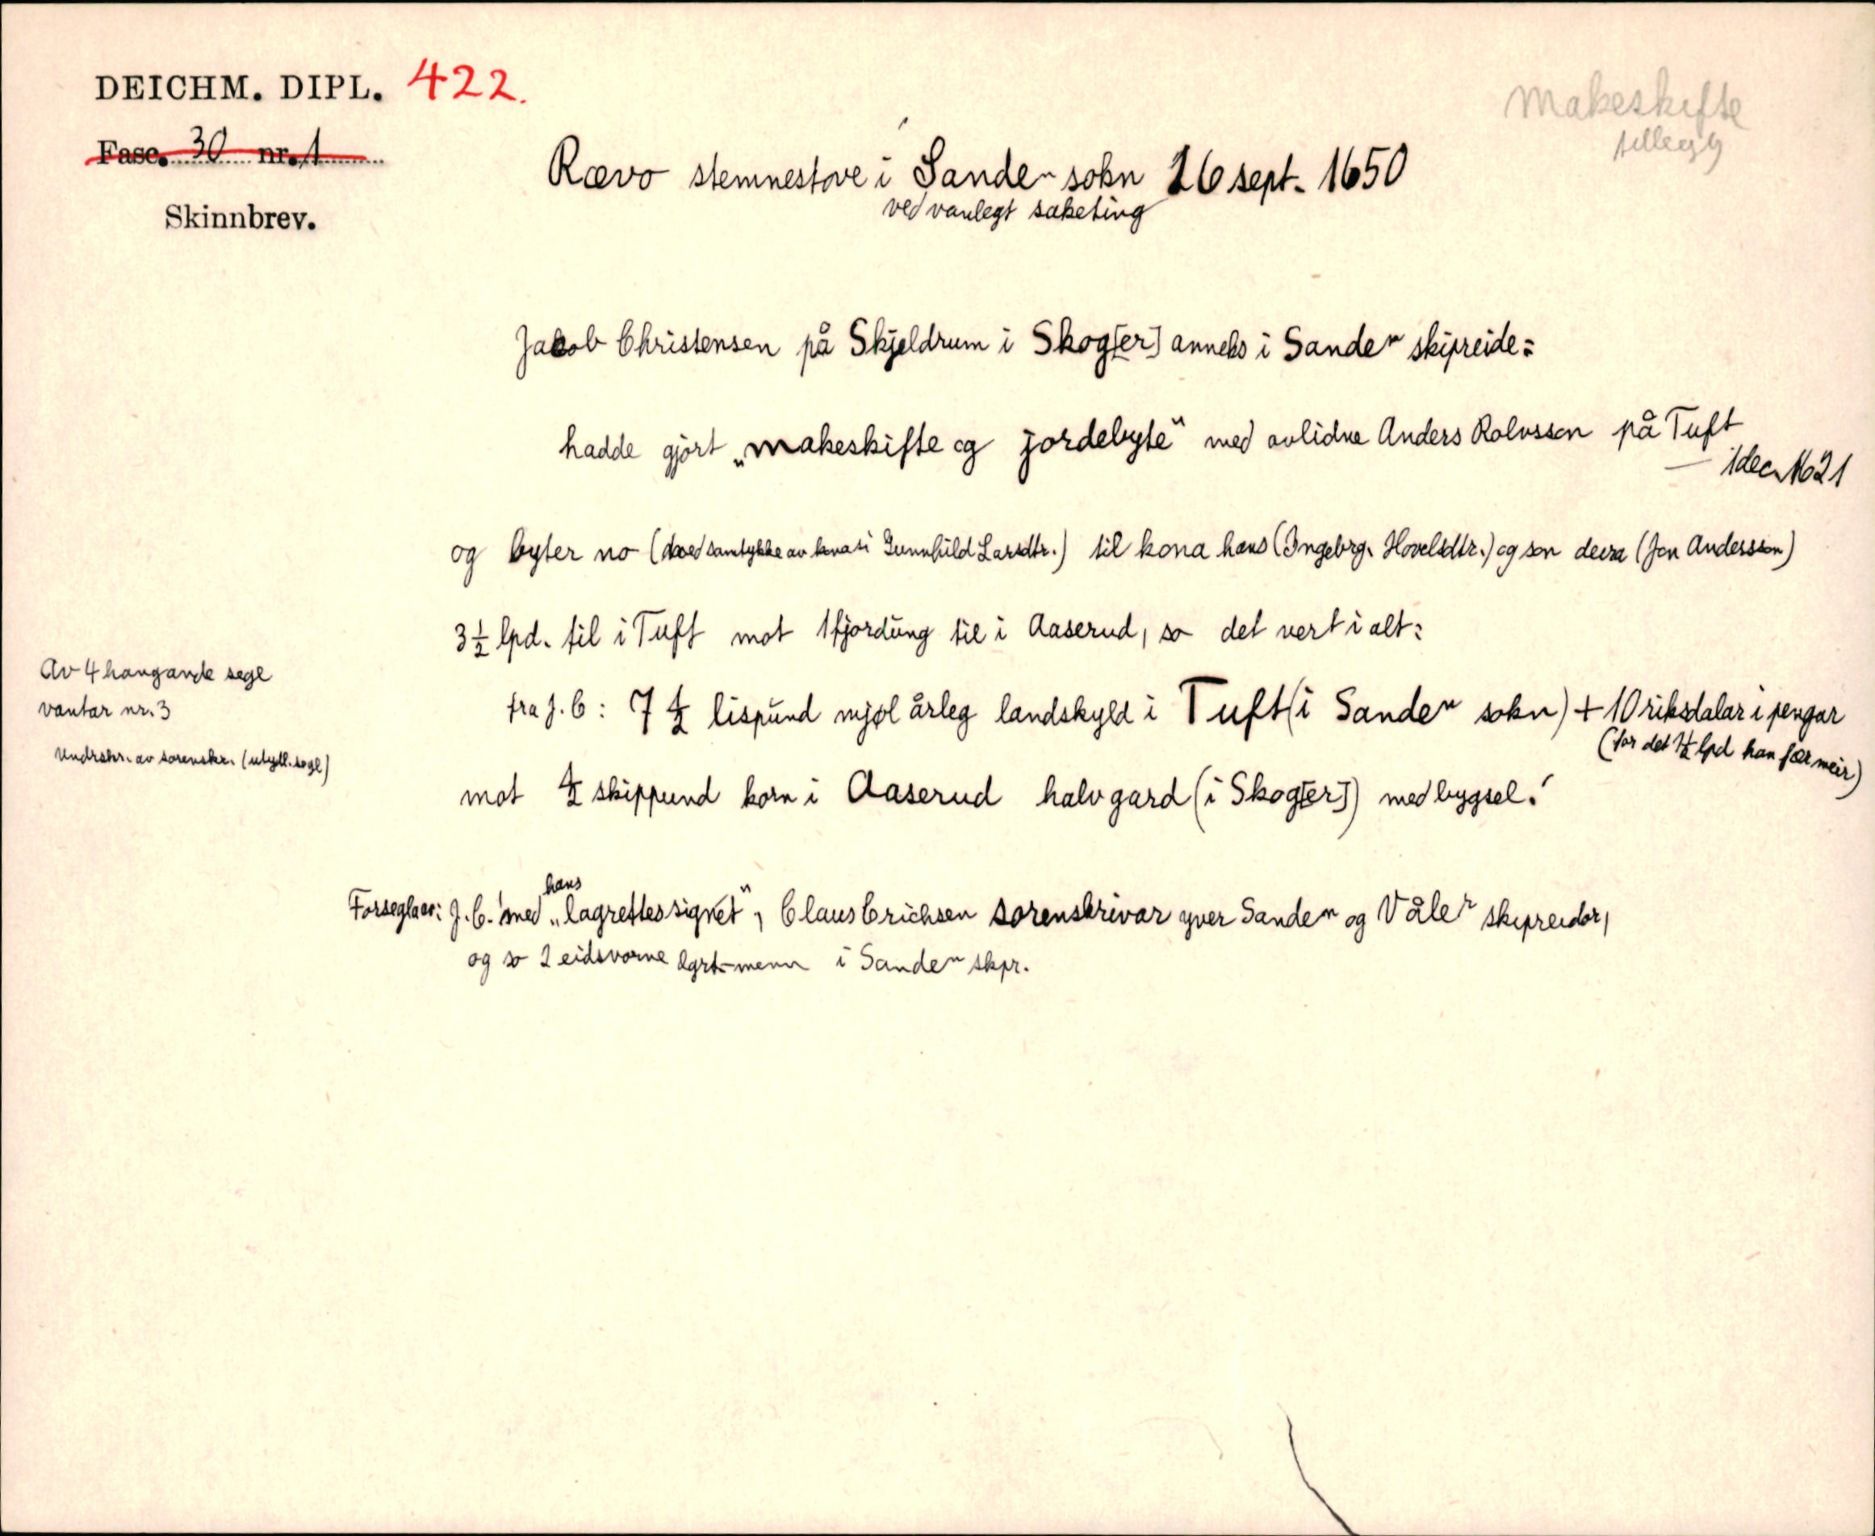 DEICHM. DIPL. 422.
Fasc. 30 nr. 1
Skinnbrev.
Makeskifte
tillegg
Rævo stemnestove i Sande sokn 26 sept. 1650
ved vanlegt saketing
Jacob Christensen på Skjeldrum i Skog[er] anneks i Sande skipreide:
hadde gjort „makeskifte og jordebyte" med avlidne Anders Rolvsson på Tuft
— 1 dec. 1621
og byter no (med samtykke av kona si Gunnhild Larsdtr.) til kona hans (Ingebrg. Hovelsdtr.) og son deira (Jon Andersson)
3½ lpd. til i Tuft mot 1 fjordung til i Aaserud, so det vert i alt:
fra J. C: 7½ lispund mjøl årleg landskyld i Tuft (i Sande sokn) + 10 riksdalar i pengar
(for det 1½ lpd han fær meir)
mot ½ skippund korn i Aaserud halvgard (i Skog[er]) med bygsel.
Av 4 hangande segl
vantar nr. 3
Undrskr. av sorenskr. (utydl. segl)
Forseglar: J. C. med hans „lagrettessignet", Claus Erichsen sorenskrivar yver Sande og Våle skipreidor,
og so 2 eidsvorne lgrt-menn i Sande skpr.